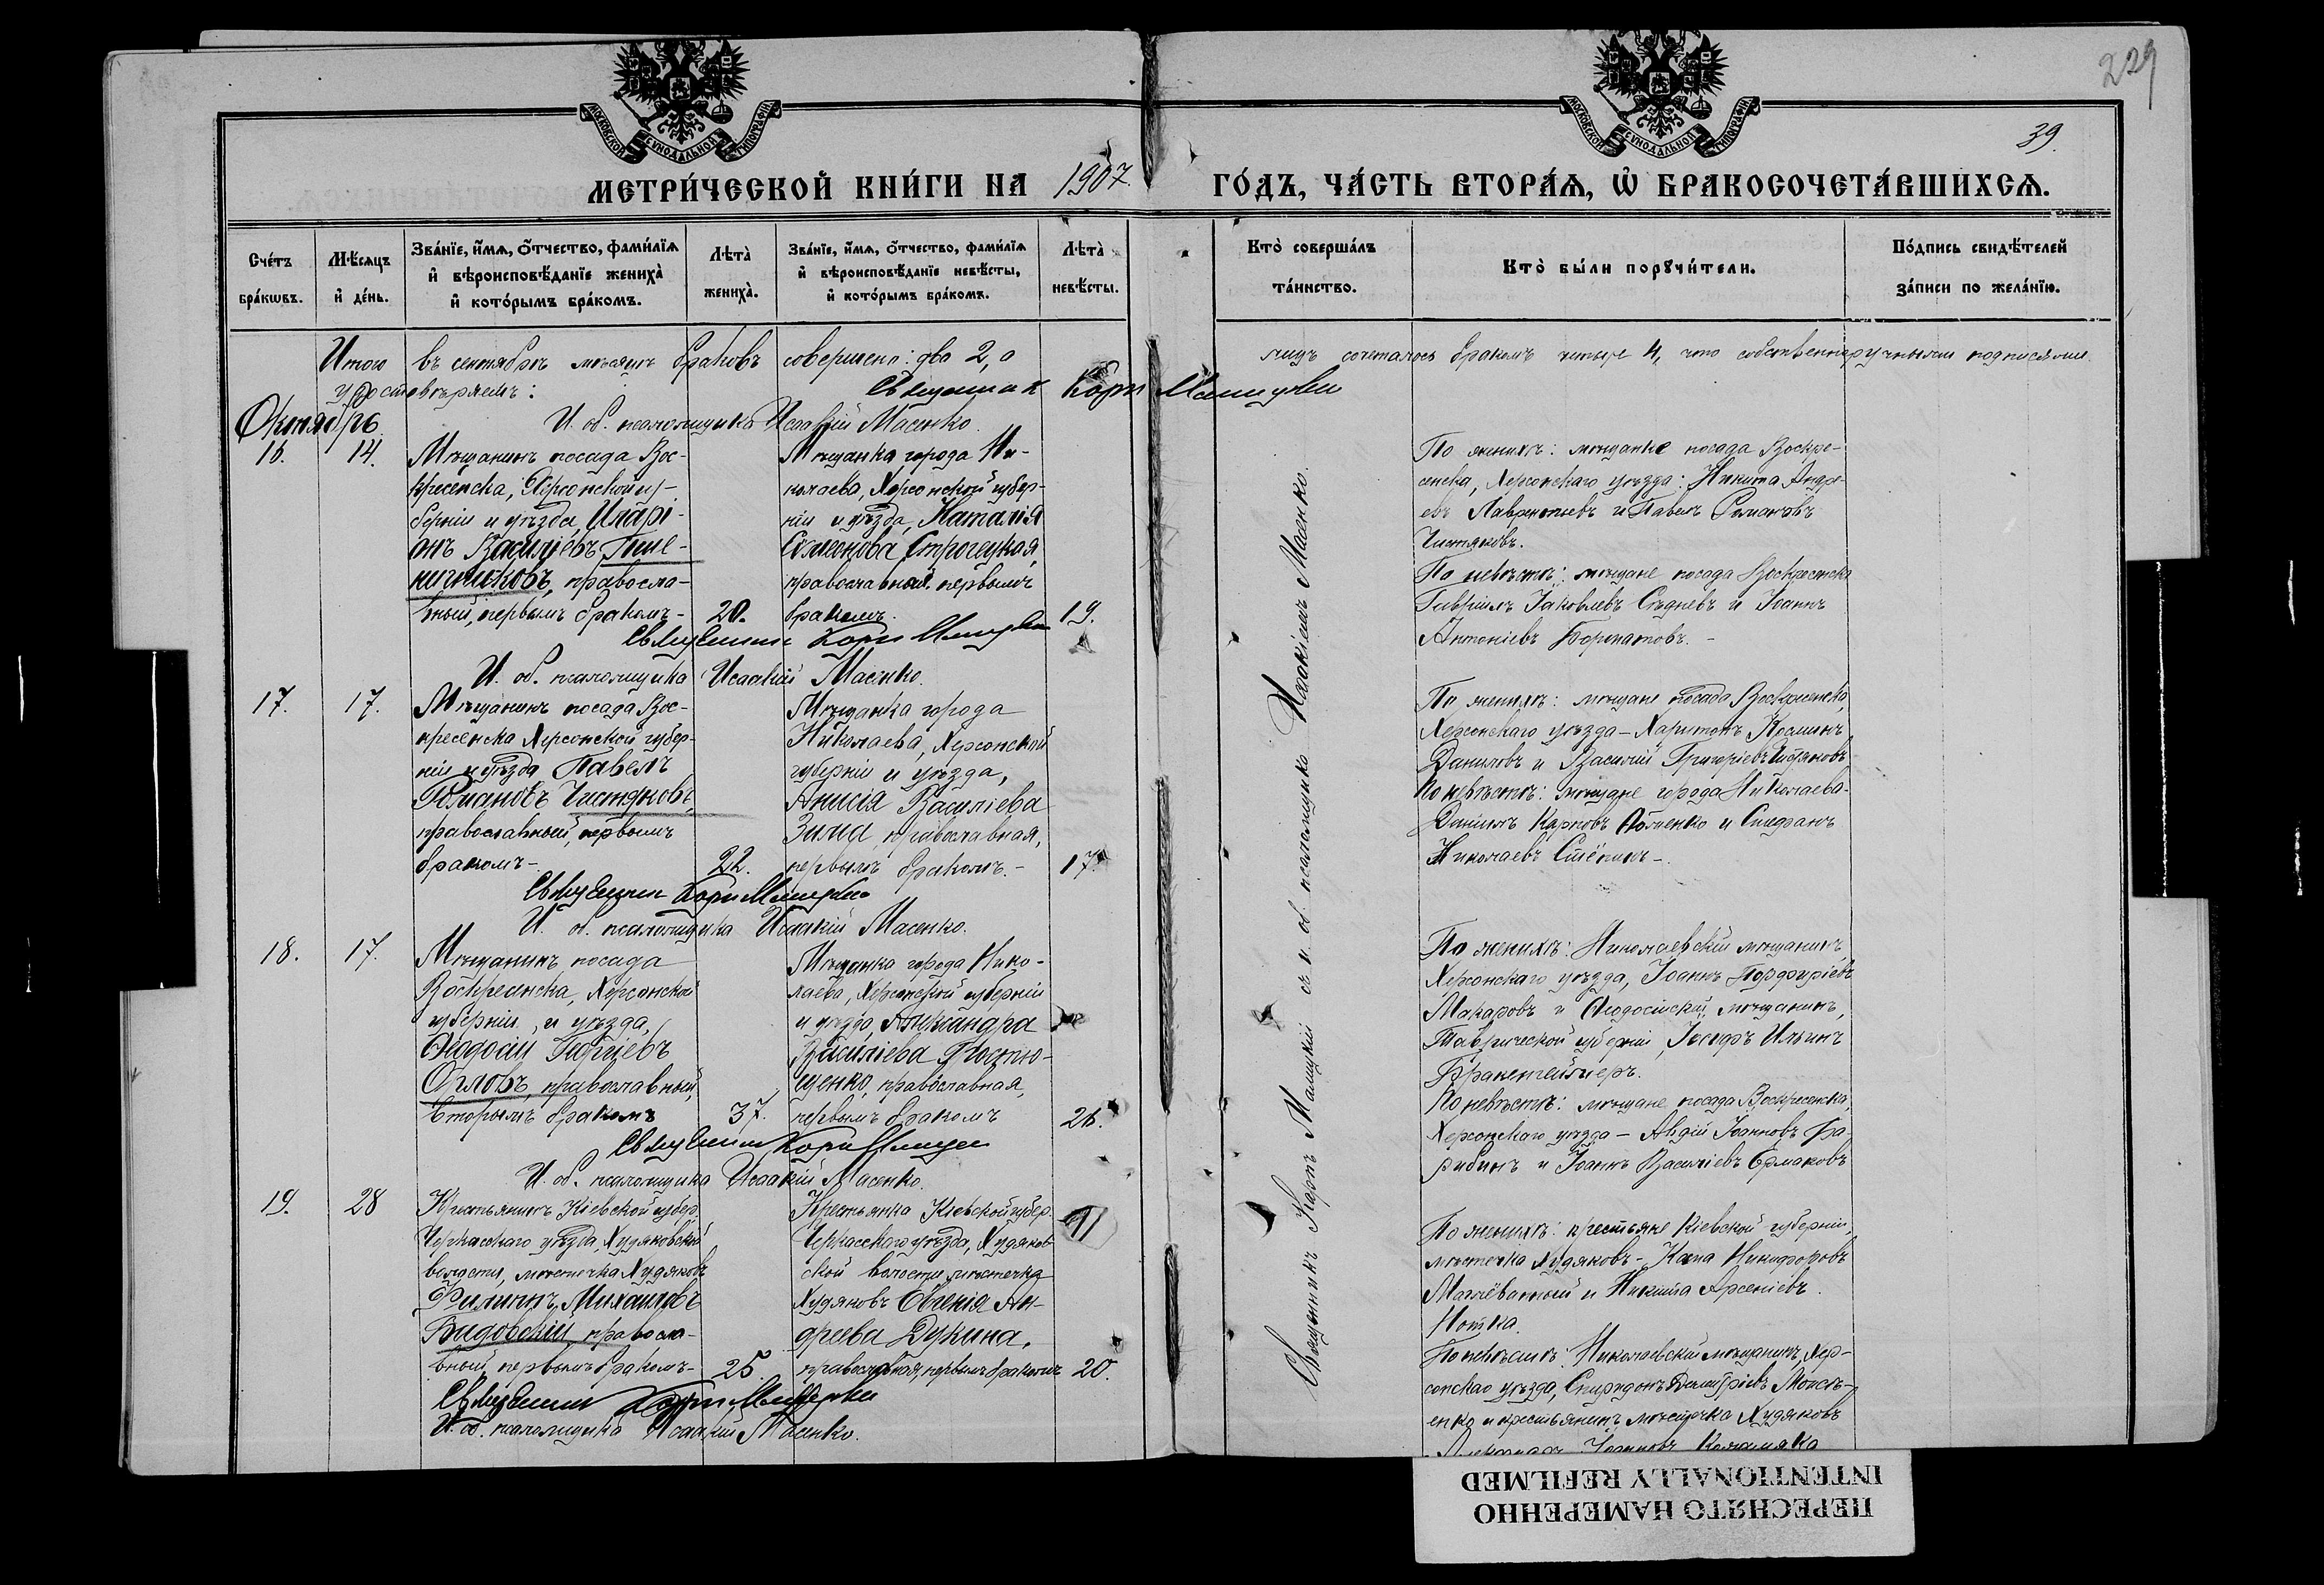 229
39.
МОСКОВСКОЙ СИНОДАЛЬНОЙ ТИПОГРАФІИ
МОСКОВСКОЙ СИНОДАЛЬНОЙ ТИПОГРАФІИ
МЕТРИ́ЧЕСКОЙ КНИ́ГИ НА 1907. ГО́ДЪ, ЧА́СТЬ ВТОРА́Ѧ, Ѡ҆ БРАКОСОЧЕТА́ВШИХСѦ.
Сче́тъ бра́кѡвъ.
Мѣ́сѧцъ и҆ де́нь.
Зва́нїе, и҆́мѧ, ѻ҆́тчество, фами́лїѧ
и҆ вѣроисповѣ́данїе жениха̀
и҆ кото́рымъ бра́комъ.
Лѣта̀ жениха̀.
Зва́нїе, и҆́мѧ, ѻ҆́тчество, фами́лїѧ
и҆ вѣроисповѣ́данїе невѣ́сты,
и҆ кото́рымъ бра́комъ.
Лѣта̀ невѣ́сты.
Кто̀ соверша́лъ та́инство.
Кто̀ бы́ли порꙋчи́тели.
По́дпись свидѣ́телей за́писи по жела́нїю.
Итого въ сентябрѣ мѣсяцѣ браковъ совершено: два 2, а лицъ сочеталось бракомъ четыре 4, что собственноручными подписями
удостовѣряемъ: Священник Карп
И. об. псаломщика Исаакій Масенко.
Октябрь
14.
Мѣщанинъ посада Вос-
кресенска, Херсонской гу-
берніи и уѣзда, Иларі-
онъ Василіевъ Пше-
ничниковъ, правосла-
вный, первымъ бракомъ-
20.
Мѣщанка города Ни-
колаева, Херсонской губер-
ніи и уѣзда, Наталія
Симеонова Строгецкая,
православная, первымъ
бракомъ.
19.
По женихѣ: мѣщане посада Воскре-
сенска, Херсонскаго уѣзда: Никита Андре-
евъ Лаврентьевъ и Павелъ Романовъ
Чистяковъ.
По невѣстѣ: мѣщане посада Воскресенска
Гавріилъ Іаковлевъ Сѣдневъ и Іоаннъ
Антоніевъ Борматовъ.-
Священник Карп
И. об. псаломщика Исаакій Масенко.
17.
17.
Мѣщанинъ посада Вос-
кресенска Херсонской губер-
ніи и уѣзда Павелъ
Романовъ Чистяковъ,
православный, первымъ
бракомъ-
22.
Мѣщанка города
Николаева, Херсонской
губерніи и уѣзда,
Анисія Василіева
Зима, православная,
первымъ бракомъ.-
17.
По женихѣ: мѣщане посада Воскресенска,
Херсонскаго уѣзда- Харитонъ Косминъ
Даниловъ и Василій Григоріевъ Чистяковъ
По невѣстѣ: мѣщане города Николаева-
Даніилъ Карповъ и Стефанъ
Николаевъ Стёпинъ-.
Священник Карп
И. об. псаломщика Исаакій Масенко.
18.
17.
Мѣщанинъ посада
Воскресенска, Херсонской
губерніи, и уѣзда,
Ѳеодосій Георгіевъ
Орловъ, православный,
вторымъ бракомъ
37.
Мѣщанка города Нико-
лаева, Херсонской губерніи
и уѣзда, Александра
Василіева Костю-
ченко, православная,
первымъ бракомъ
26.
По женихѣ: Николаевскій мѣщанинъ,
Херсонскаго уѣзда, Іоаннъ Порфиріевъ
Макаровъ и Ѳеодосійскій мѣщанинъ,
Таврической губерніи, Іосифъ Ильинъ

По невѣстѣ: мѣщане посада Воскресенска,
Херсонскаго уѣзда- Авдій Іоанновъ Ба-
рибинъ и Іоаннъ Василіевъ Ермаковъ
Священник Карп
И. об. псаломщика Исаакій Масенко.
19.
28
Крестьянинъ Кіевской губер.
Черкасскаго уѣзда, Худяковской
волости, мѣстечка Худяковъ
Филиппъ Михаиловъ
Видовскій правосла-
вный, первымъ бракомъ-
25.
Крестьянка Кіевской губер.
Черкасскаго уѣзда, Худяков-
ской волости мѣстечка
Худяковъ Евгенія Ан-
дреева Дукина,
православная, первымъ бракомъ
20.
По женихѣ: крестьяне Кіевской губерніи,
мѣстечка Худяковъ- Никифоровъ
Малёванный и Никита Арсеніевъ

По невѣстѣ: Николаевскій мѣщанинъ, Хер-
сонскаго уѣзда, Спиридонъ Димитріевъ Моисѣ-
енко и крестьянинъ мѣстечка Худяковъ
Іоанновъ
Священник Карп
И. об. псаломщика Исаакій Масенко.
Священникъ Карпъ съ и. об. псаломщика Исаакіемъ Масенко.
ПЕРЕСНЯТО НАМЕРЕННО
INTENTIONALLY REFILMED